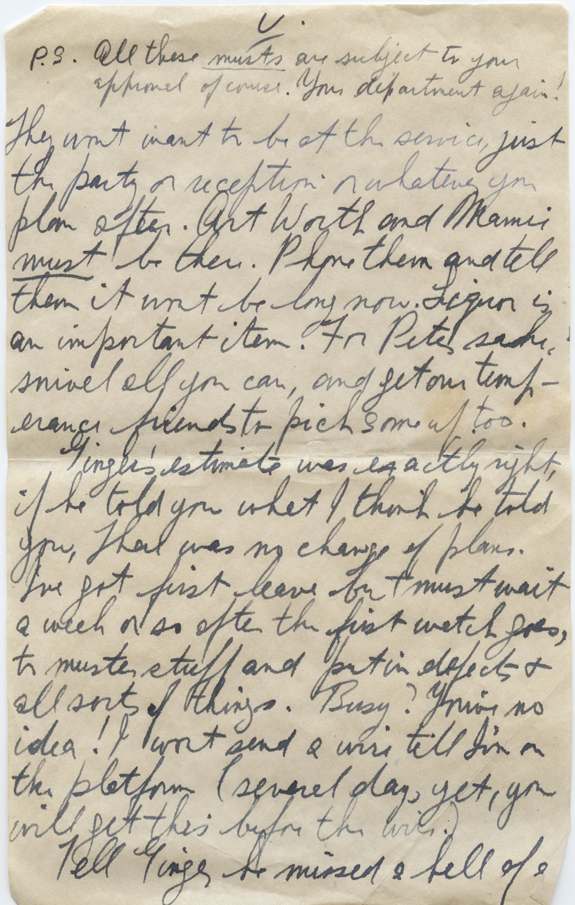 V.
P.S. All these musts are subject to your
approval of course. Your department again!
They wont want to be at the service, just
the party or reception or whatever you
plan after. Art Worth and Mamie
must be there. Phone them and tell
them it wont be long now. Liquor is
an important item. For Petes sake,
snivel all you can, and get our temp-
erance friends to pick some up too.
Ginger's estimate was exactly right,
if he told you what I think he told
you, There was no change of plans.
I've got first leave but must wait
a week or so after the first watch goes,
to muster stuff and put in defects &
all sorts of things. Busy? You've no
idea! I wont send a wire till I'm on
the platform (several days yet, you
will get this before the wire.)
Tell Ginger he missed a hell of a